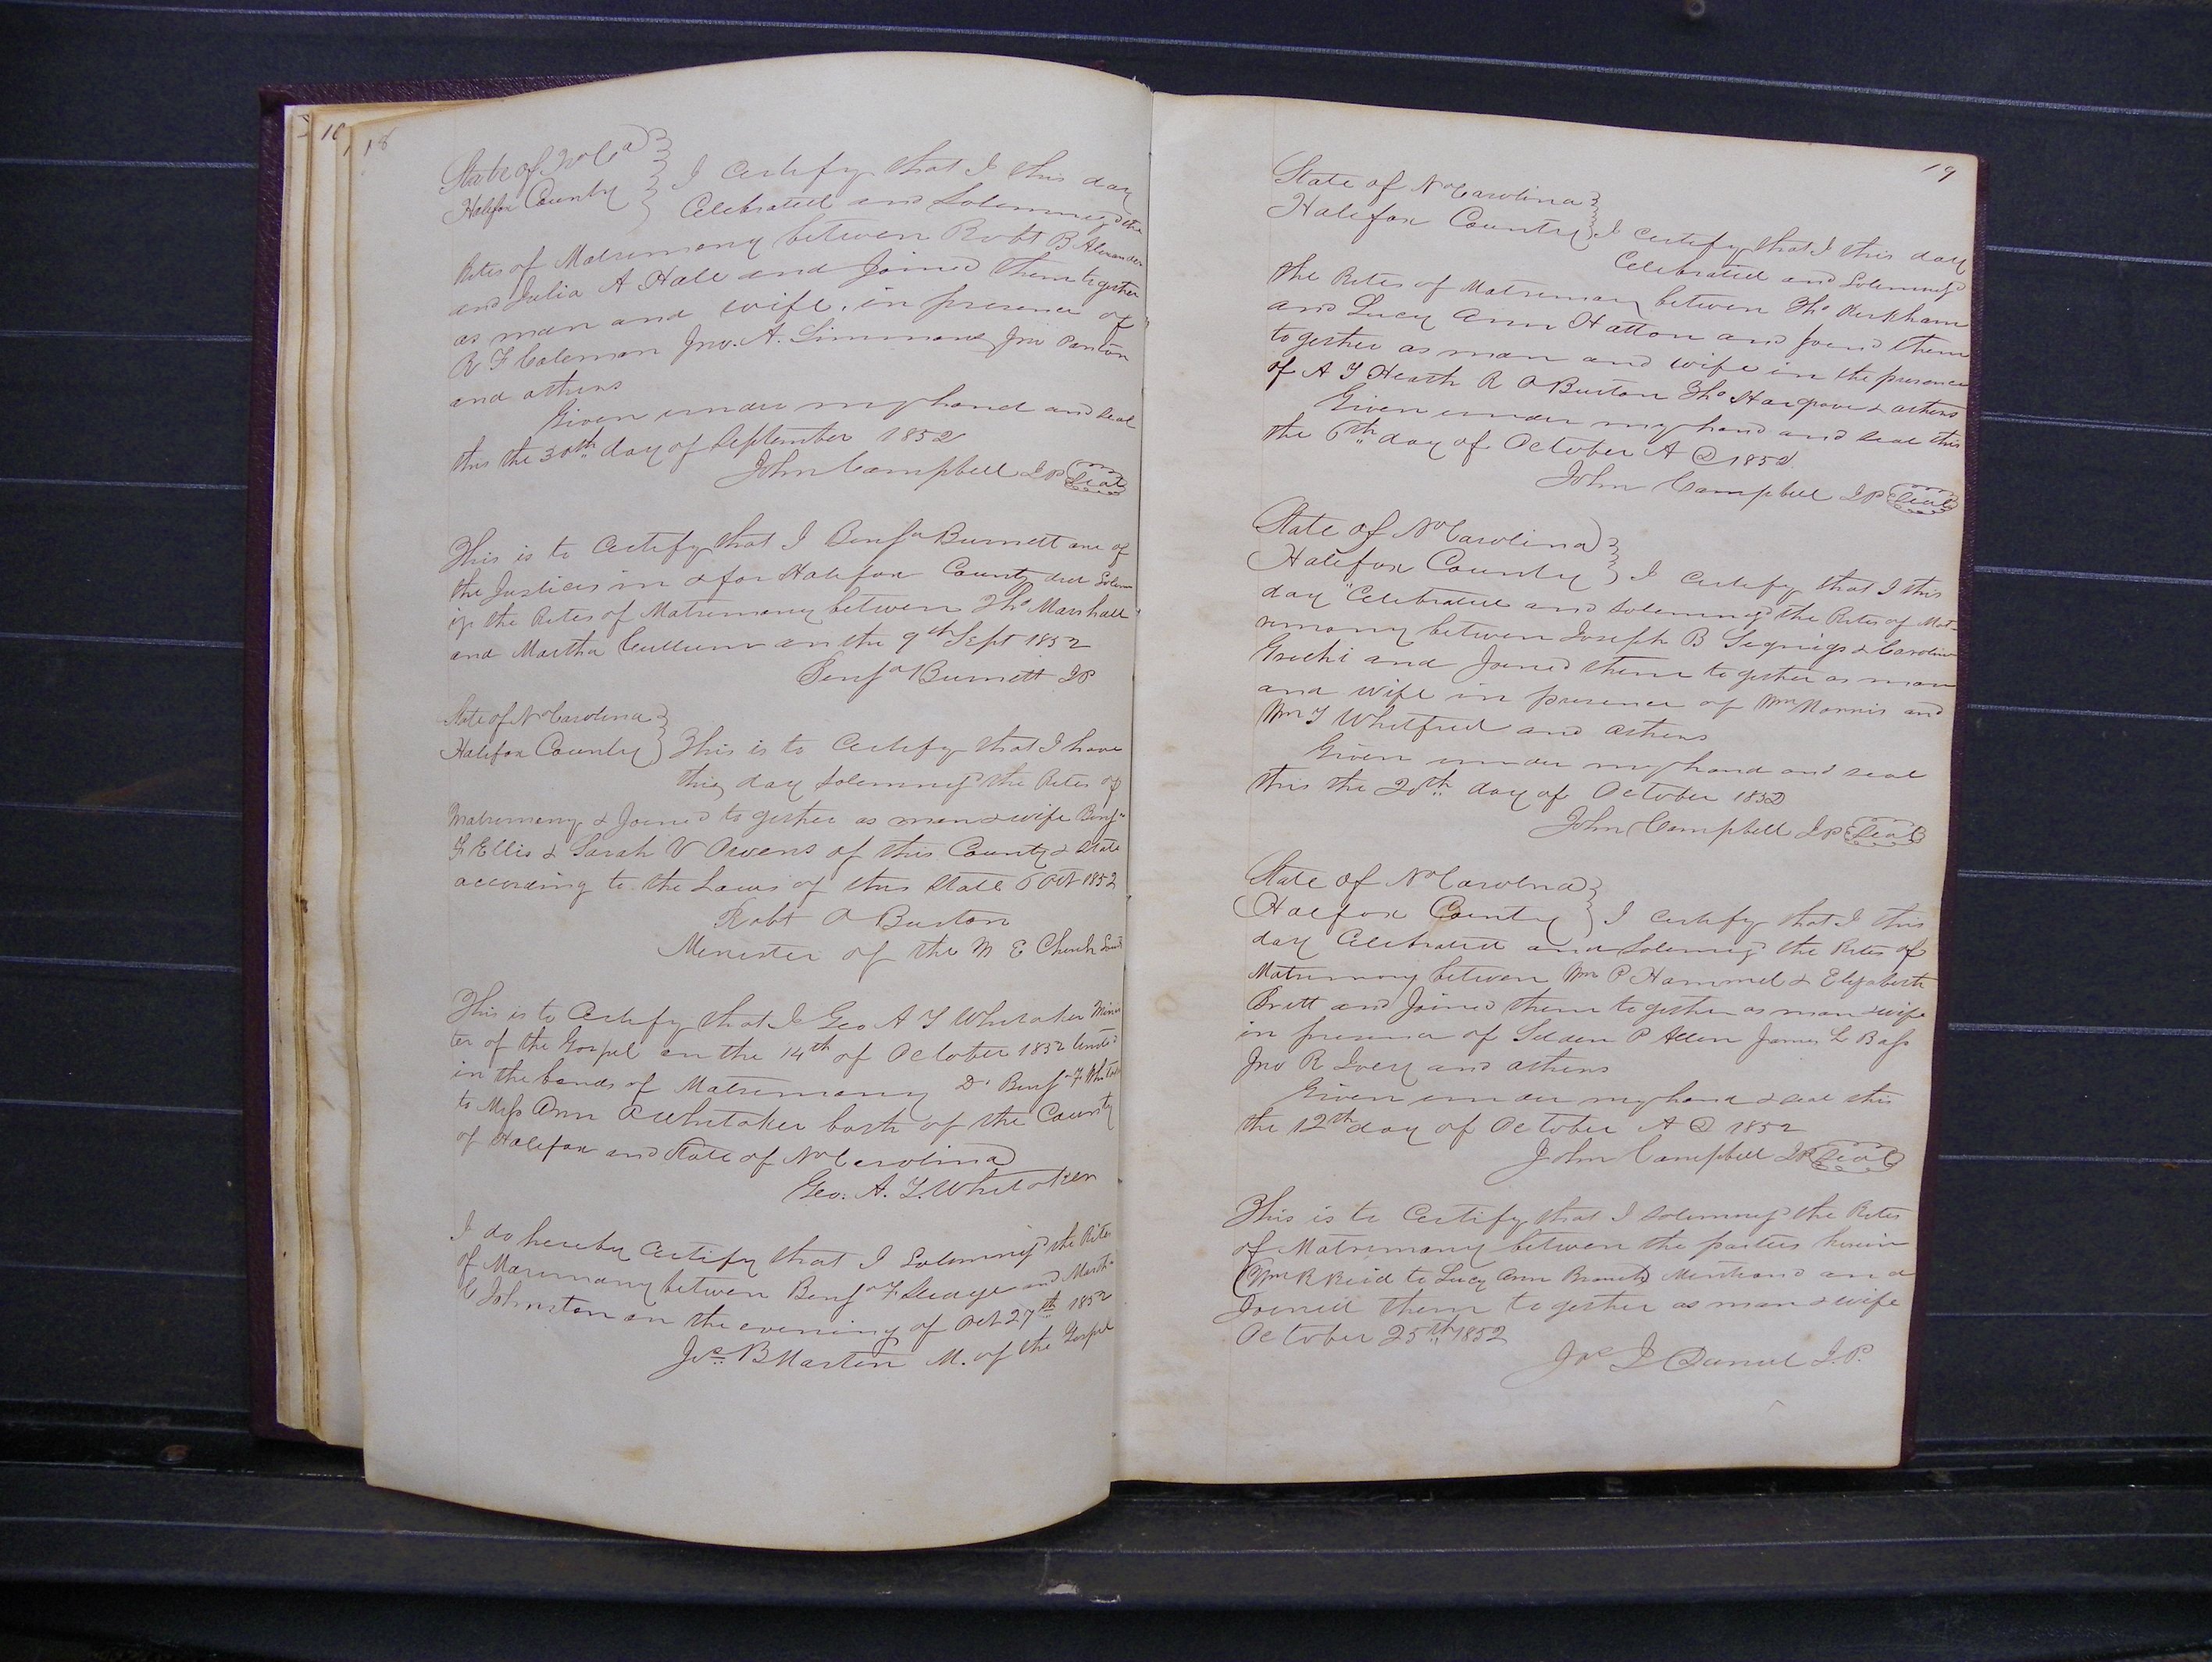 18
State of No Ca
Halifax County
I Certify that I this day
Celebrated and Solemnizd the
Rites of Matrimony between Robt B Alexander
and Julia A Hale and Joined them together
as man and wife, in presence of
R F Coleman Jno. A. Simmons Jno Panton
and others
Given under my hand and seal
this the 30th day of September 1852
John Campbell JP Seal
This is to Certify that I Benja Burnett one of
the Justices in & for Halifax County did Solem
ize the Rites of Matrimony between Tho Marshall
and Martha Cullum on the 9th Sept 1852
Benja Burnett JP
State of No Carolina
Halifax County
This is to Certify that I have
this day Solemnizd the Rites of
Matrimony & Joined together as man & wife Benja
F Ellis & Sarah V Owens of this County & State
according to the Laws of this State 6 Oct 1852
Robt O Burton
Minister of the M E Church South
This is to Certify that I Geo A T Whitaker Minis
ter of the Gospel on the 14th of October 1852 United
in the bonds of Matrimony Dr Benja F Whitaker
to Miss Ann Whitaker both of the County
of Halifax and State of No Carolina
Geo. A. T. Whitaker
I do hereby Certify that I Solemnizd the Rites
of Marimony between Benja F Sledge and Martha
C Johnston on the evening of Oct 27th 1852
Jas. B Martin M. of the Gospel
19
State of No Carolina
Halifax County
I Certify that I this day
Celebrated and Solemnizd
the Rites of Matrimony between Tho Kirkham
and Lucy Ann Hatton and Joined them
together as man and wife in the presence
of A T Heath R O Burton Tho Hargrove & others
Given under my hand and seal this
the 6th day of October A D 1852
John Campbell JP Seal
State of No Carolina
Halifax County
I Certify that I this
day Celebrated and Solemnizd the Rites of Mat-
rimony between Joseph B & Caroline
and Joined them together as man
and wife in presence of Wm Norris and
Wm T Whitfield and others
Given under my hand and seal
this the 20th day of October 1852
John Campbell JP Seal
State of No Carolina
Halifax County
I Certify that I this
day Celebrated and Solemnizd the Rites of
Matrimony between Wm P Hammel & Elizabeth
Britt and Joined them together as man & wife
in presence of Selden P Allen James L Bass
Jno R Ivey and others
Given under my hand & seal this
the 12th day of October A D 1852
John Campbell JP Seal
This is to Certify that I solemnizd the Rites
of Matrimony between the parties herein
(Wm R Reid to Lucy Ann Branch) Mentioned and
Joined them together as man & wife
October 25th 1852
Jos J Daniel J.P.